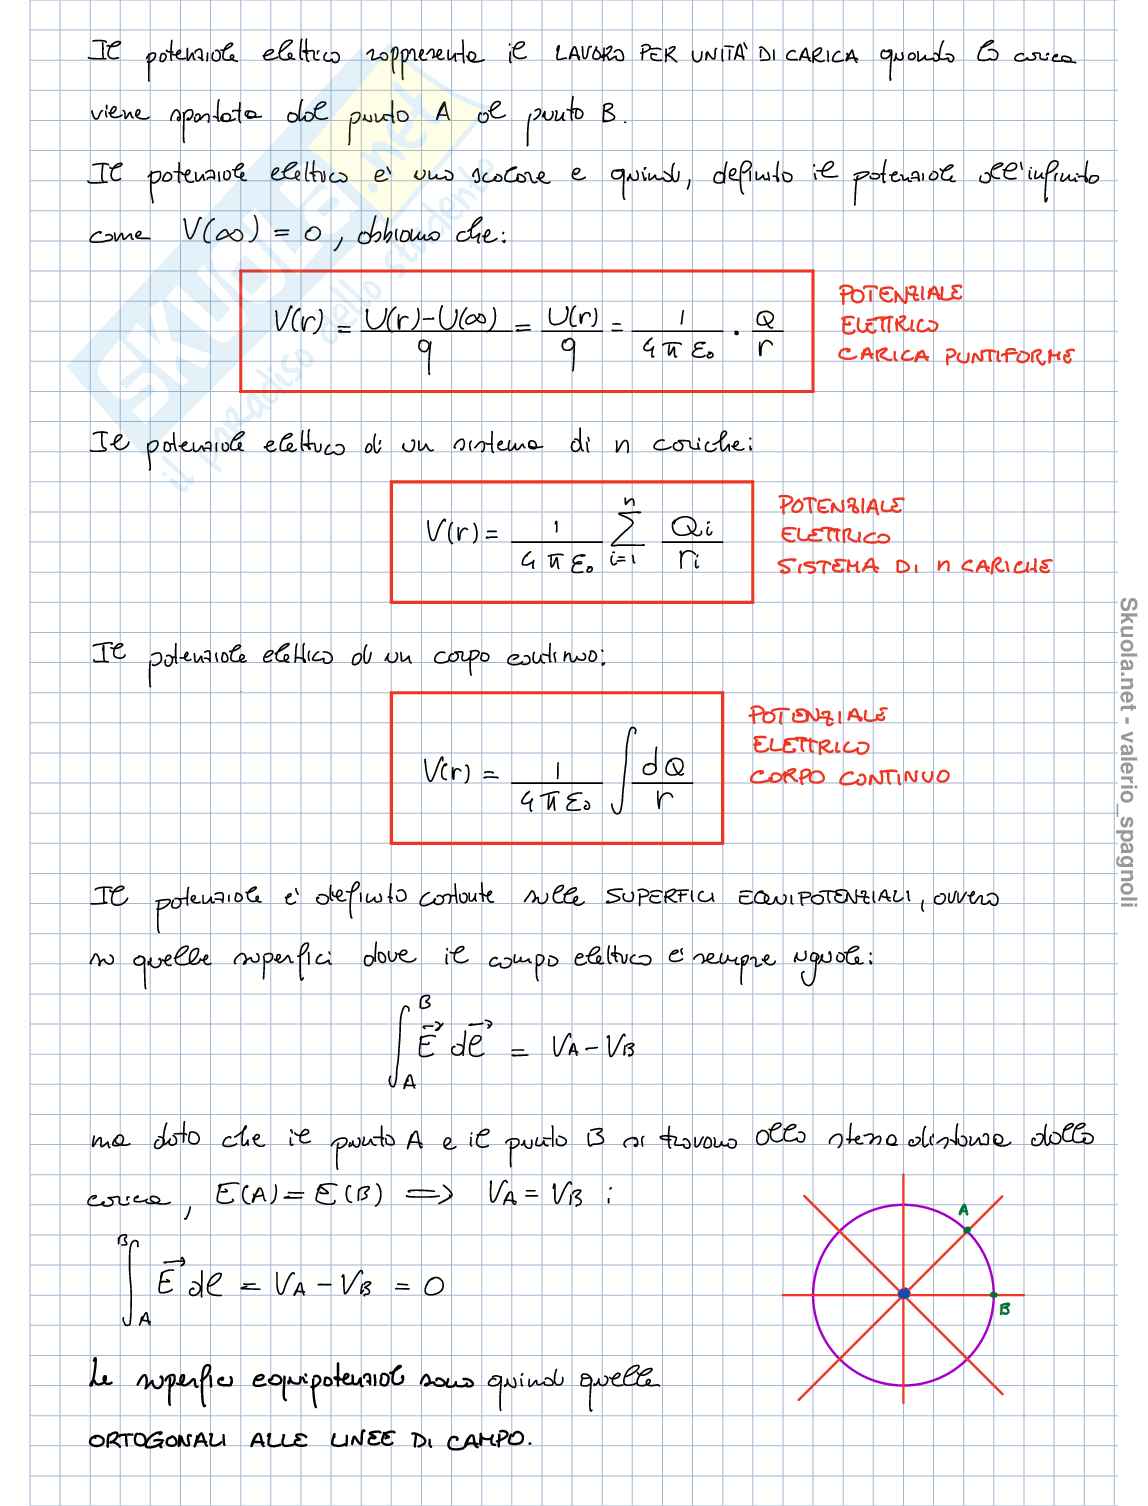 Il potenziale elettrico rappresenta il LAVORO PER UNITÀ DI CARICA quando la carica
viene spostata dal punto A al punto B.
Il potenziale elettrico è uno scalare e quindi, definito il potenziale all'infinito
come V(∞) = 0, abbiamo che:
V(r) = U(r)-U(∞)/q = U(r)/q = 1/4πε₀ · Q/r
POTENZIALE
ELETTRICO
CARICA PUNTIFORME
Il potenziale elettrico di un sistema di n cariche:
V(r) = 1/4πε₀ ∑ᵢ₌₁ⁿ Qi/ri
POTENZIALE
ELETTRICO
SISTEMA DI n CARICHE
Il potenziale elettrico di un corpo continuo:
V(r) = 1/4πε₀ ∫ dQ/r
POTENZIALE
ELETTRICO
CORPO CONTINUO
Il potenziale è definito costante sulle SUPERFICI EQUIPOTENZIALI, ovvero
su quelle superfici dove il campo elettrico è sempre uguale:
∫_A^B E⃗ dl⃗ = VA - VB
ma dato che il punto A e il punto B si trovano alla stessa distanza dalla
carica, E(A) = E(B) => VA = VB :
∫_A^B E⃗ dl = VA - VB = 0
A
B
Le superfici equipotenziali sono quindi quelle
ORTOGONALI ALLE LINEE DI CAMPO.
SKUOLA.net
il paradiso dello studente
Skuola.net - valerio_spagnoli